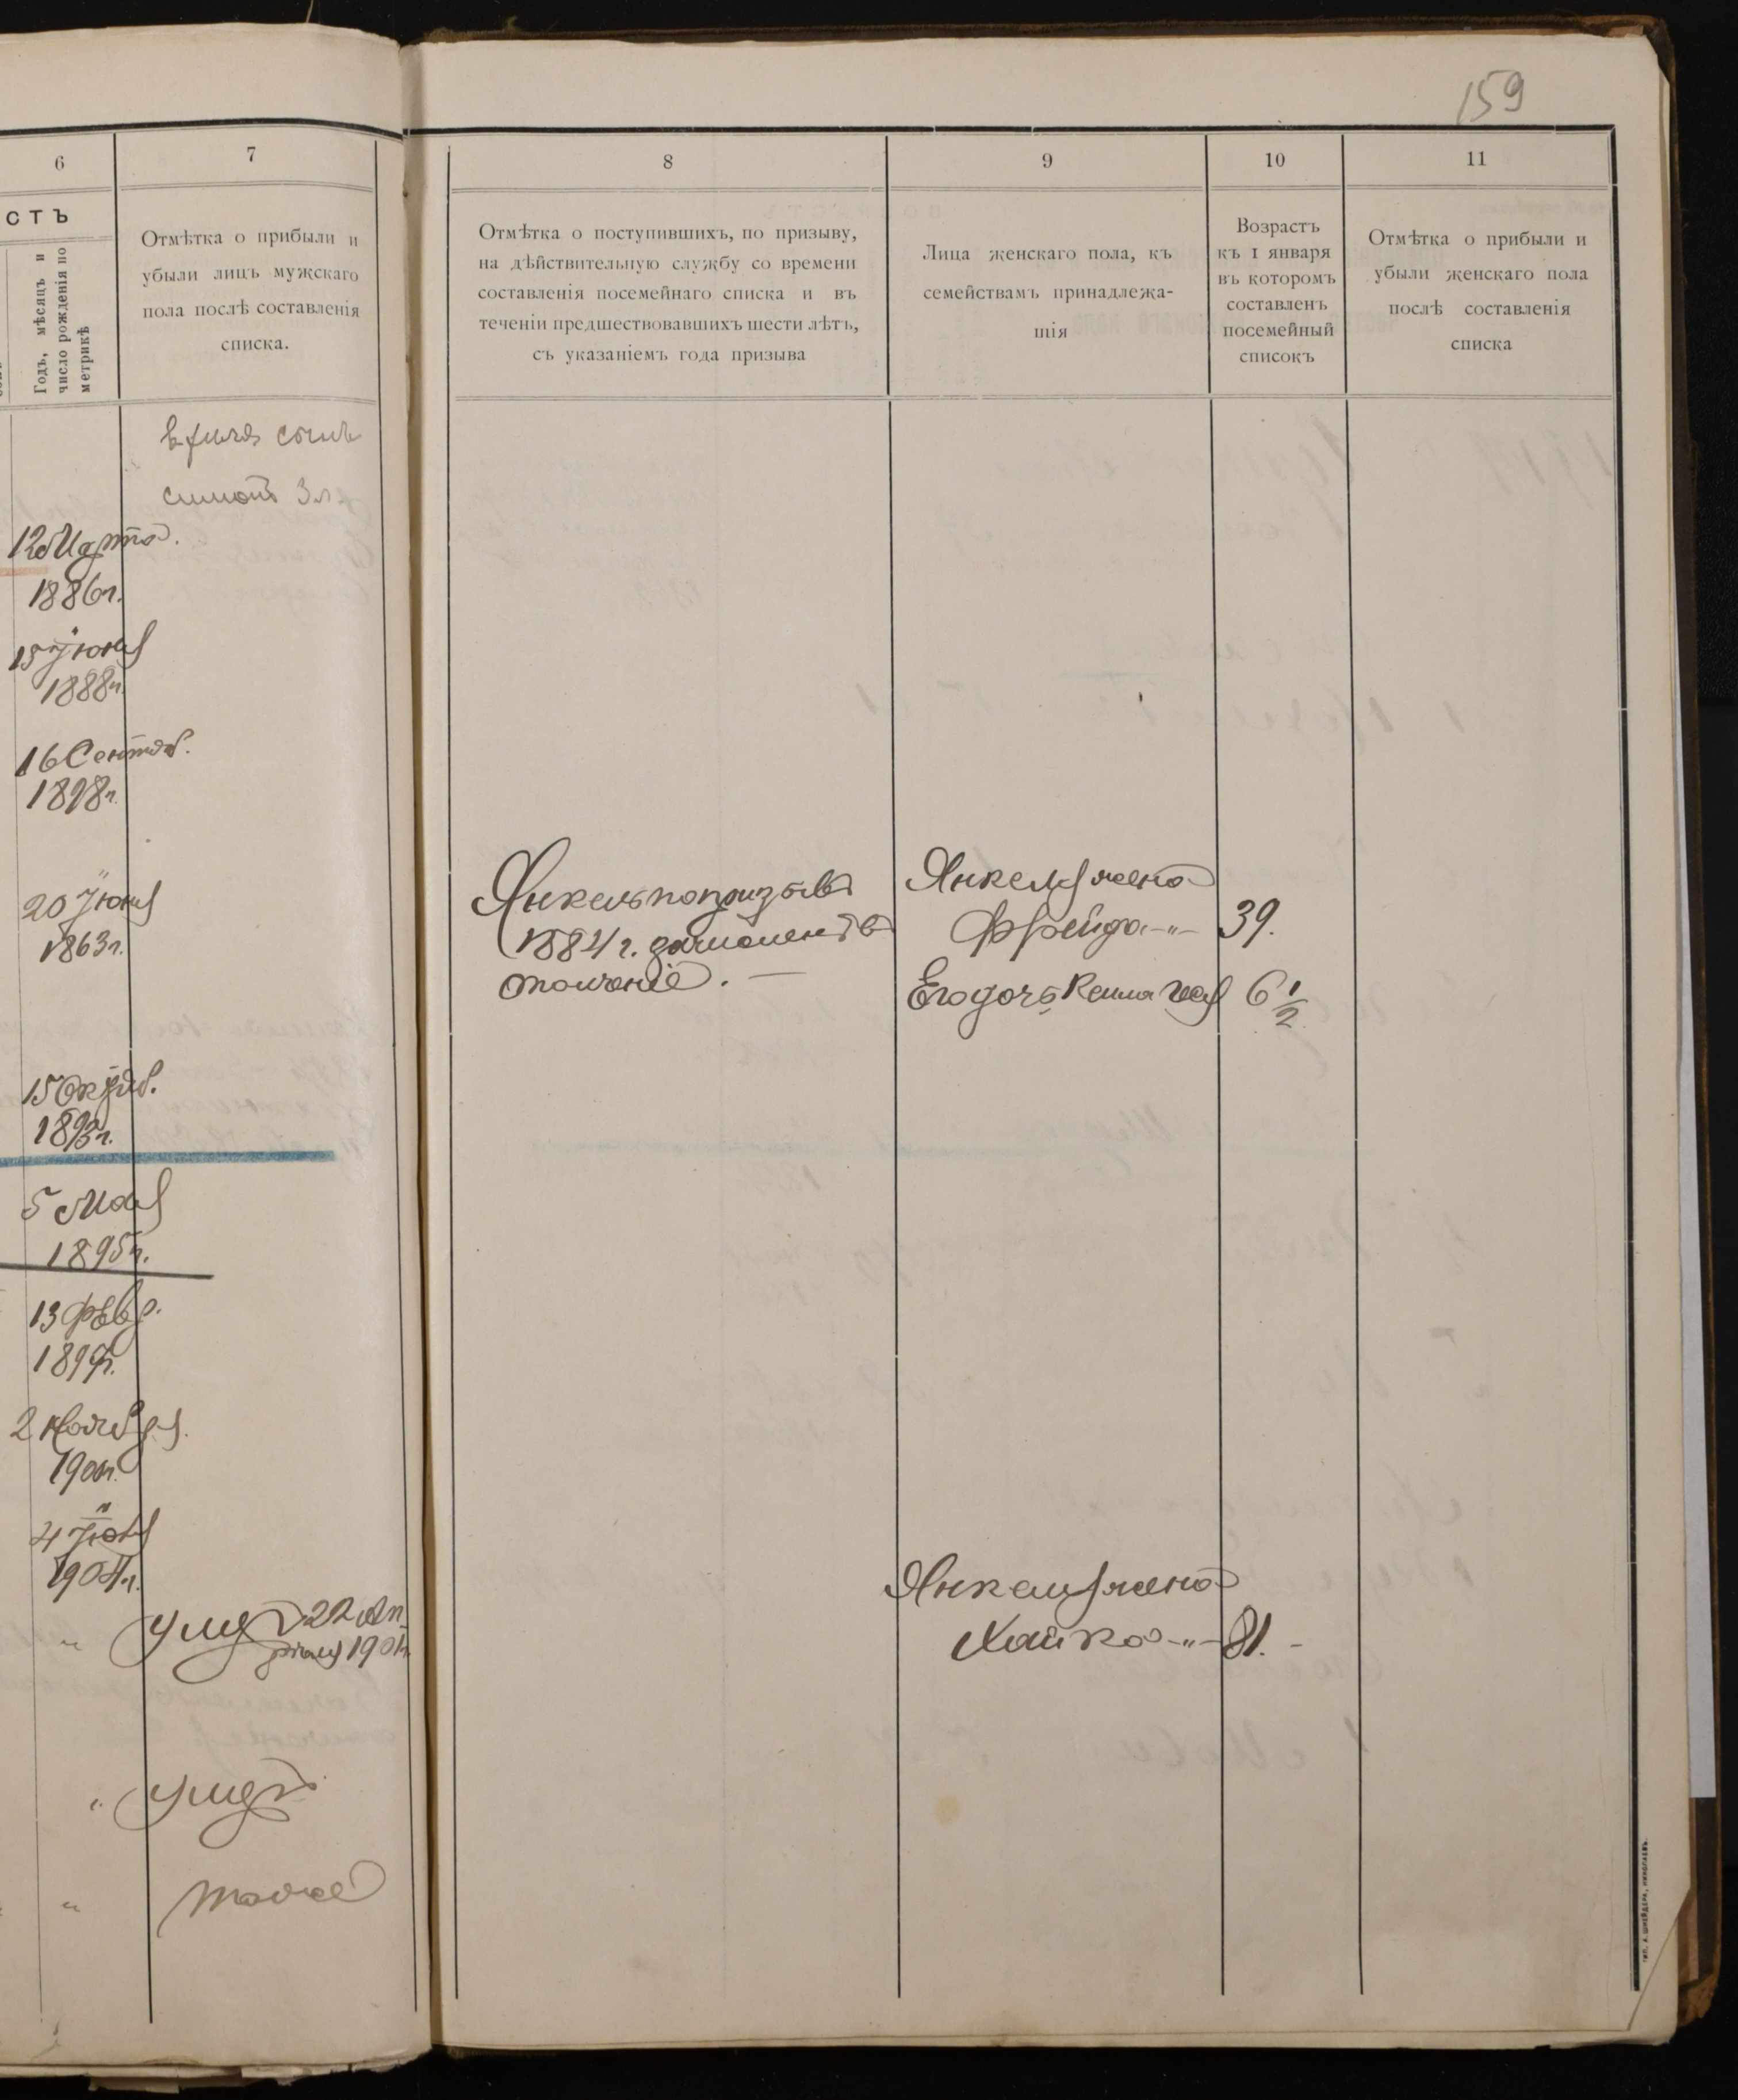 159
6
7
СТЪ
Годъ, мѣсяцъ и
число рожденія по
метрикѣ
Отмѣтка о прибыли и
убыли лицъ мужскаго
пола послѣ составленія
списка.
сынъ
Симонъ 3 л.
12 Марта.
1886 г.
15 Іюня
1888 г.
16 Сентяб.
1898 г.
20 Іюня
1863 г.
15 Октяб.
1893 г.
5 Мая
1895 г.
13 Февр.
189
2 Ноября.
190
4
1904 г.
" Умер 22 Ап
рѣля 1901 г.
" Умеръ
" тоже
8
9
10
11
Отмѣтка о поступившихъ, по призыву,
на дѣйствительную службу со времени
составленія посемейнаго списка и въ
теченіи предшествовавшихъ шести лѣтъ,
съ указаніемъ года призыва
Лица женскаго пола, къ
семействамъ принадлежа-
щія
Возрастъ
къ 1 января
въ которомъ
составленъ
посемейный
списокъ
Отмѣтка о прибыли и
убыли женскаго пола
послѣ составленія
списка
Янкель по призыву
1884 г. зачисленъ въ
ополченіе. —
Янкеля жена
Фрейда -"- 39.
Его дочь 6 1/2
Янкеля жена
Хайка -"- 81. -
тип. А. Шнейдера, Николаевъ.